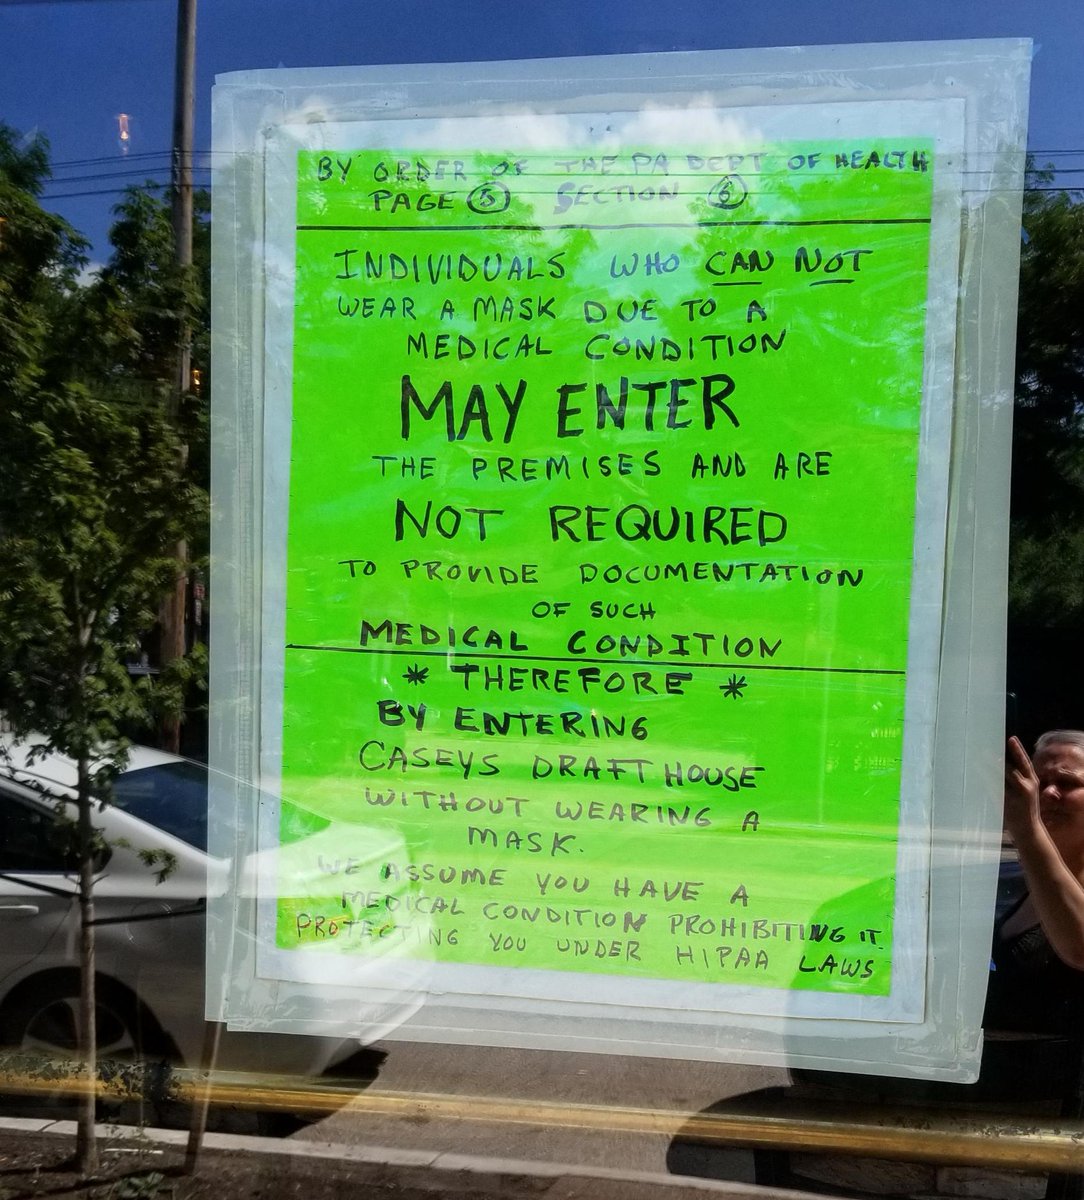 BY ORDER OF THE PA DEPT OF HEALTH
PAGE 5 SECTION 6
INDIVIDUALS WHO CAN NOT
WEAR A MASK DUE TO A
MEDICAL CONDITION
MAY ENTER
THE PREMISES AND ARE
NOT REQUIRED
TO PROVIDE DOCUMENTATION
OF SUCH
MEDICAL CONDITION
* THEREFORE *
BY ENTERING
CASEYS DRAFT HOUSE
WITHOUT WEARING A
MASK.
WE ASSUME YOU HAVE A
MEDICAL CONDITION PROHIBITING IT.
PROTECTING YOU UNDER HIPAA LAWS